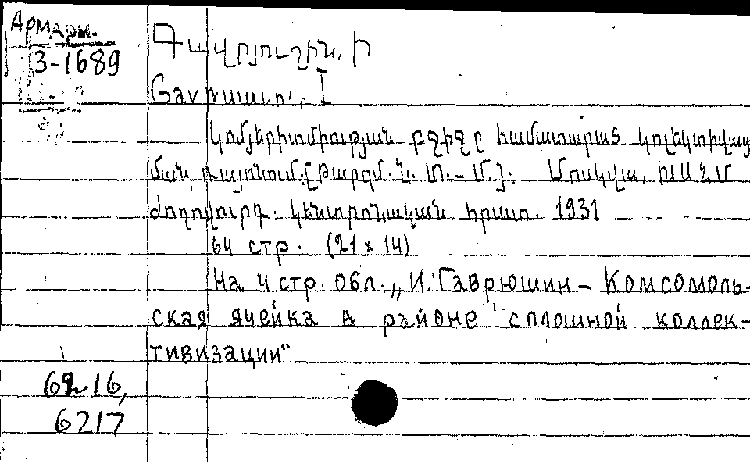 Армарм.
3-1689
Գավրյուշին, Ի
Gavr, I
կոմյերիտմիության բջիջը համատարած կոլեկտիվաց
ման շրջանում. Թարգմ. Ն. Տ. – Մ. Մոսկվա, ԽՍՀՄ
ժողովուրդ. կենտրոնական հրատ. 1931
64 стр. (21 x 14)
На 4 стр. обл. „И. Гаврюшин – Комсомоль-
ская ячейка в районе сплошной коллек-
тивизации"
69-16,
6217